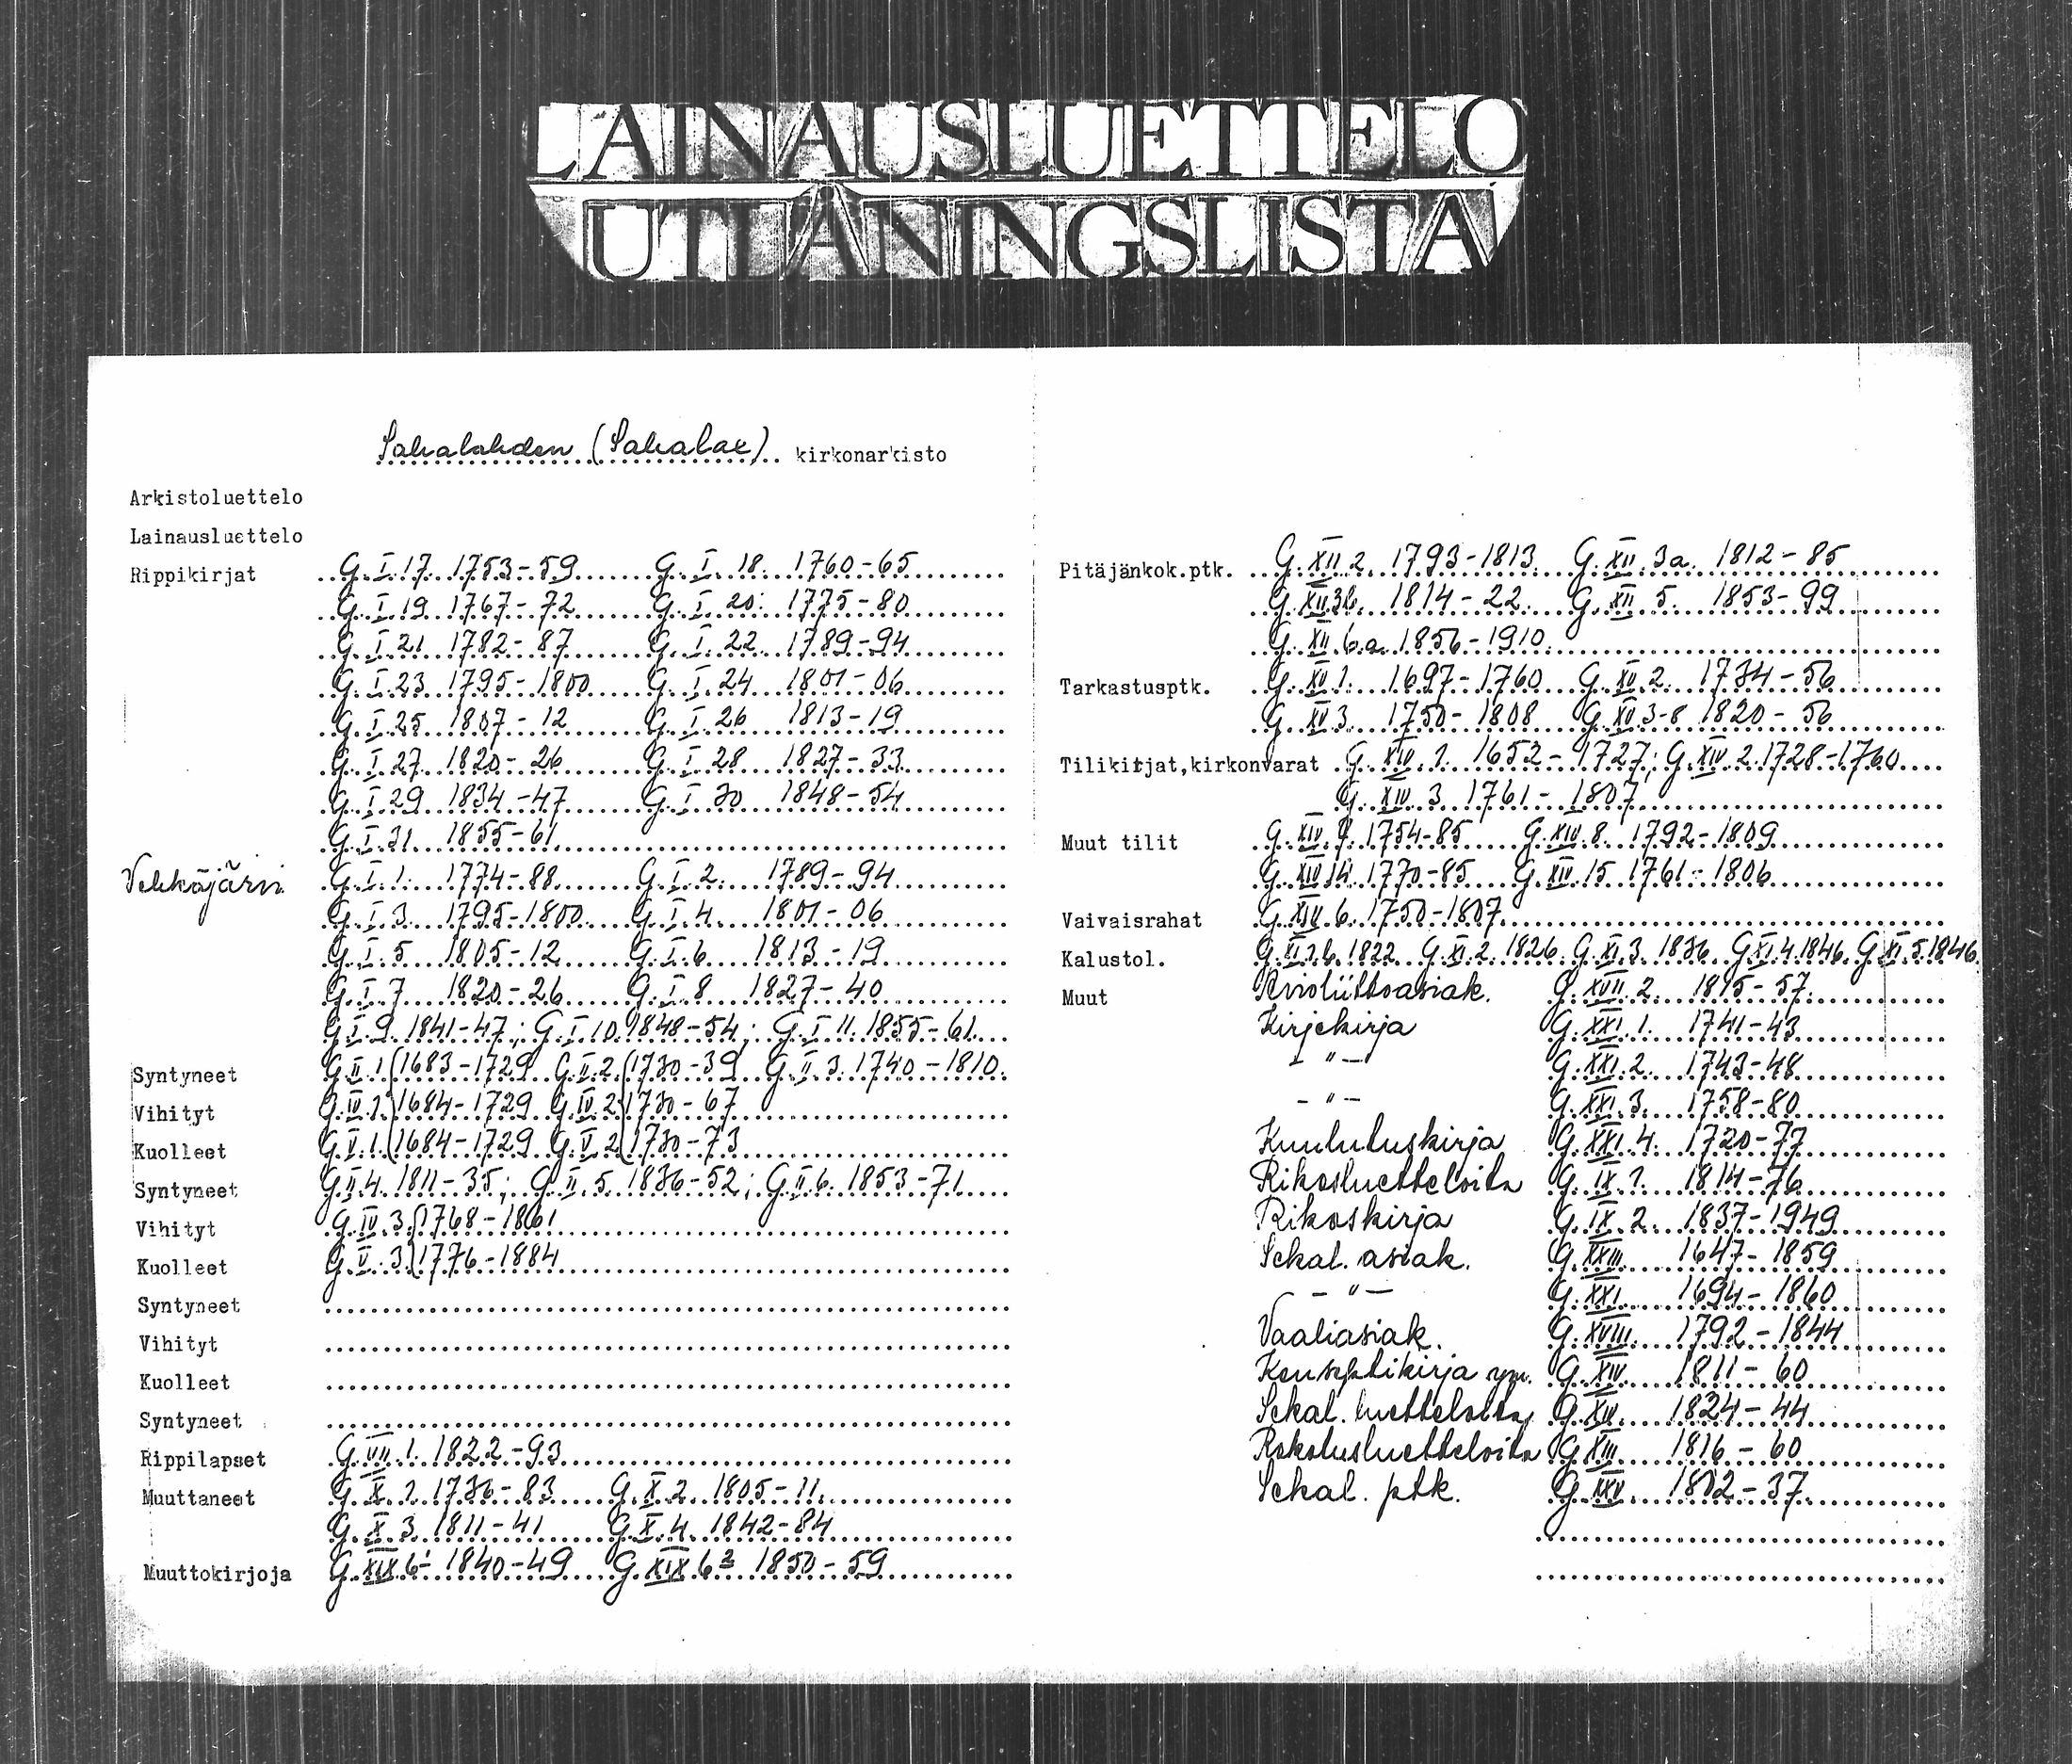 LAINAUSLUETTELO
UTLÅNINGSLISTA
Sahalahden (Sahalax) kirkonarkisto
Arkistoluettelo
Lainausluettelo
Rippikirjat G.I.17. 1753-59 G.I.18. 1760-65
G.I.19 1767-72 G.I.20. 1775-80
G.I.21 1782-87 G.I.22 1789-94
G.I.23 1795-1800 G.I.24 1801-06
G.I.25 1807-12 G.I.26 1813-19
G.I.27 1820-26 G.I.28 1827-33
G.I.29 1834-47 G.I.30 1848-54
G.I.31 1855-61
Vehkajärvi G.I.1. 1774-88 G.I.2. 1789-94
G.I.3. 1795-1800 G.I.4. 1801-06
G.I.5 1805-12 G.I.6 1813-19
G.I.7 1820-26 G.I.8 1827-40
G.I.9. 1841-47; G.I.10. 1848-54; G.I.11. 1855-61
Syntyneet G.II.1. 1683-1729 G.II.2. 1730-39 G.II.3. 1740-1810.
Vihityt G.IV.1. 1684-1729 G.IV.2. 1730-67
Kuolleet G.V.1. 1684-1729 G.V.2. 1730-73
Syntyneet G.II.4. 1811-35; G.II.5. 1836-52; G.II.6. 1853-71
Vihityt G.IV.3. 1768-1861
Kuolleet G.V.3. 1776-1884
Syntyneet
Vihityt
Kuolleet
Syntyneet
Rippilapset G.VII.1. 1822-93
Muuttaneet G.X.1. 1736-83 G.X.2. 1805-11
G.X.3. 1811-41 G.X.4. 1842-84
Muuttokirjoja G.XIX.6¹ 1840-49 G.XIX.6² 1850-59
Pitäjänkok.ptk. G.XII.2. 1793-1813 G.XII.3a. 1812-85
G.XII.3b. 1814-22 G.XII.5. 1853-99
G.XII.6a. 1856-1910.
Tarkastusptk. G.XV.1. 1697-1760 G.XV.2. 1734-56
G.XV.3. 1750-1808 G.XV.3-8 1820-56
Tilikirjat,kirkonvarat G.XIV.1. 1652-1727; G.XIV.2. 1728-1760
G.XIV.3. 1761-1807
Muut tilit G.XIV.7. 1754-85 G.XIV.8. 1792-1809
G.XIV.14. 1770-85 G.XIV.15 1761-1806
Vaivaisrahat G.XIV.6. 1750-1807
Kalustol. G.XI.1b. 1822 G.XI.2. 1826 G.XI.3. 1836 G.XI.4. 1846 G.XI.5. 1846.
Muut Avioliittoasiak. G.XVII.2. 1815-57.
Kirjekirja G.XXI.1. 1741-43
- " - G.XXI.2. 1743-48
- " - G.XXI.3. 1758-80
Kuulutuskirja G.XXI.4. 1720-77
Rikosluetteloita G.IX.1. 1814-76
Rikoskirja G.IX.2. 1837-1949
Sekal. asiak. G.XXIII. 1647-1859
- " - G.XXI. 1694-1860
Vaaliasiak. G.XVIII. 1792-1844
Konseptikirja ym. G.XIV. 1811-60
Sekal. luetteloita G.XV. 1824-44
Rokotusluetteloita G.XIII. 1816-60
Sekal. ptk. 1802-37